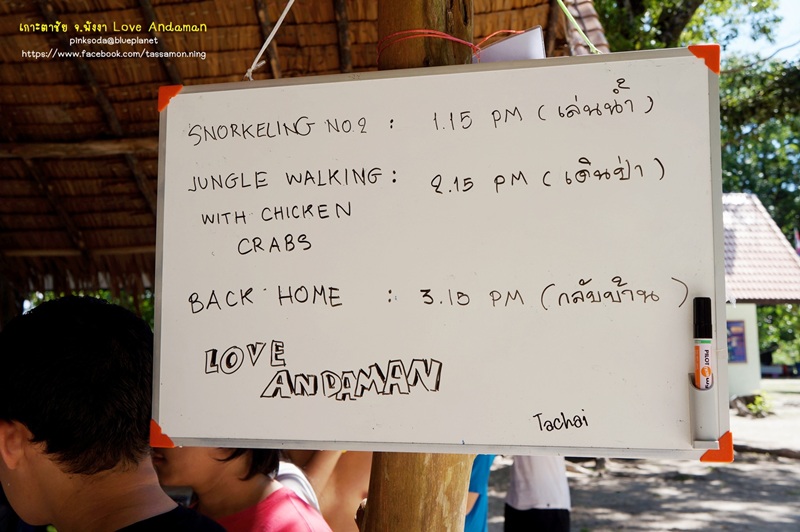 เกาะตาชัย จ.พังงา Love Andaman
pinksoda@blueplanet
https://www.facebook.com/tassamon.ning
SNORKELING NO.2 : 1.15 PM (เล่นน้ำ)
JUNGLE WALKING : 2.15 PM (เดินป่า)
WITH CHICKEN
CRABS
BACK HOME : 3.15 PM (กลับบ้าน)
LOVE
ANDAMAN
Tachai
PILOT